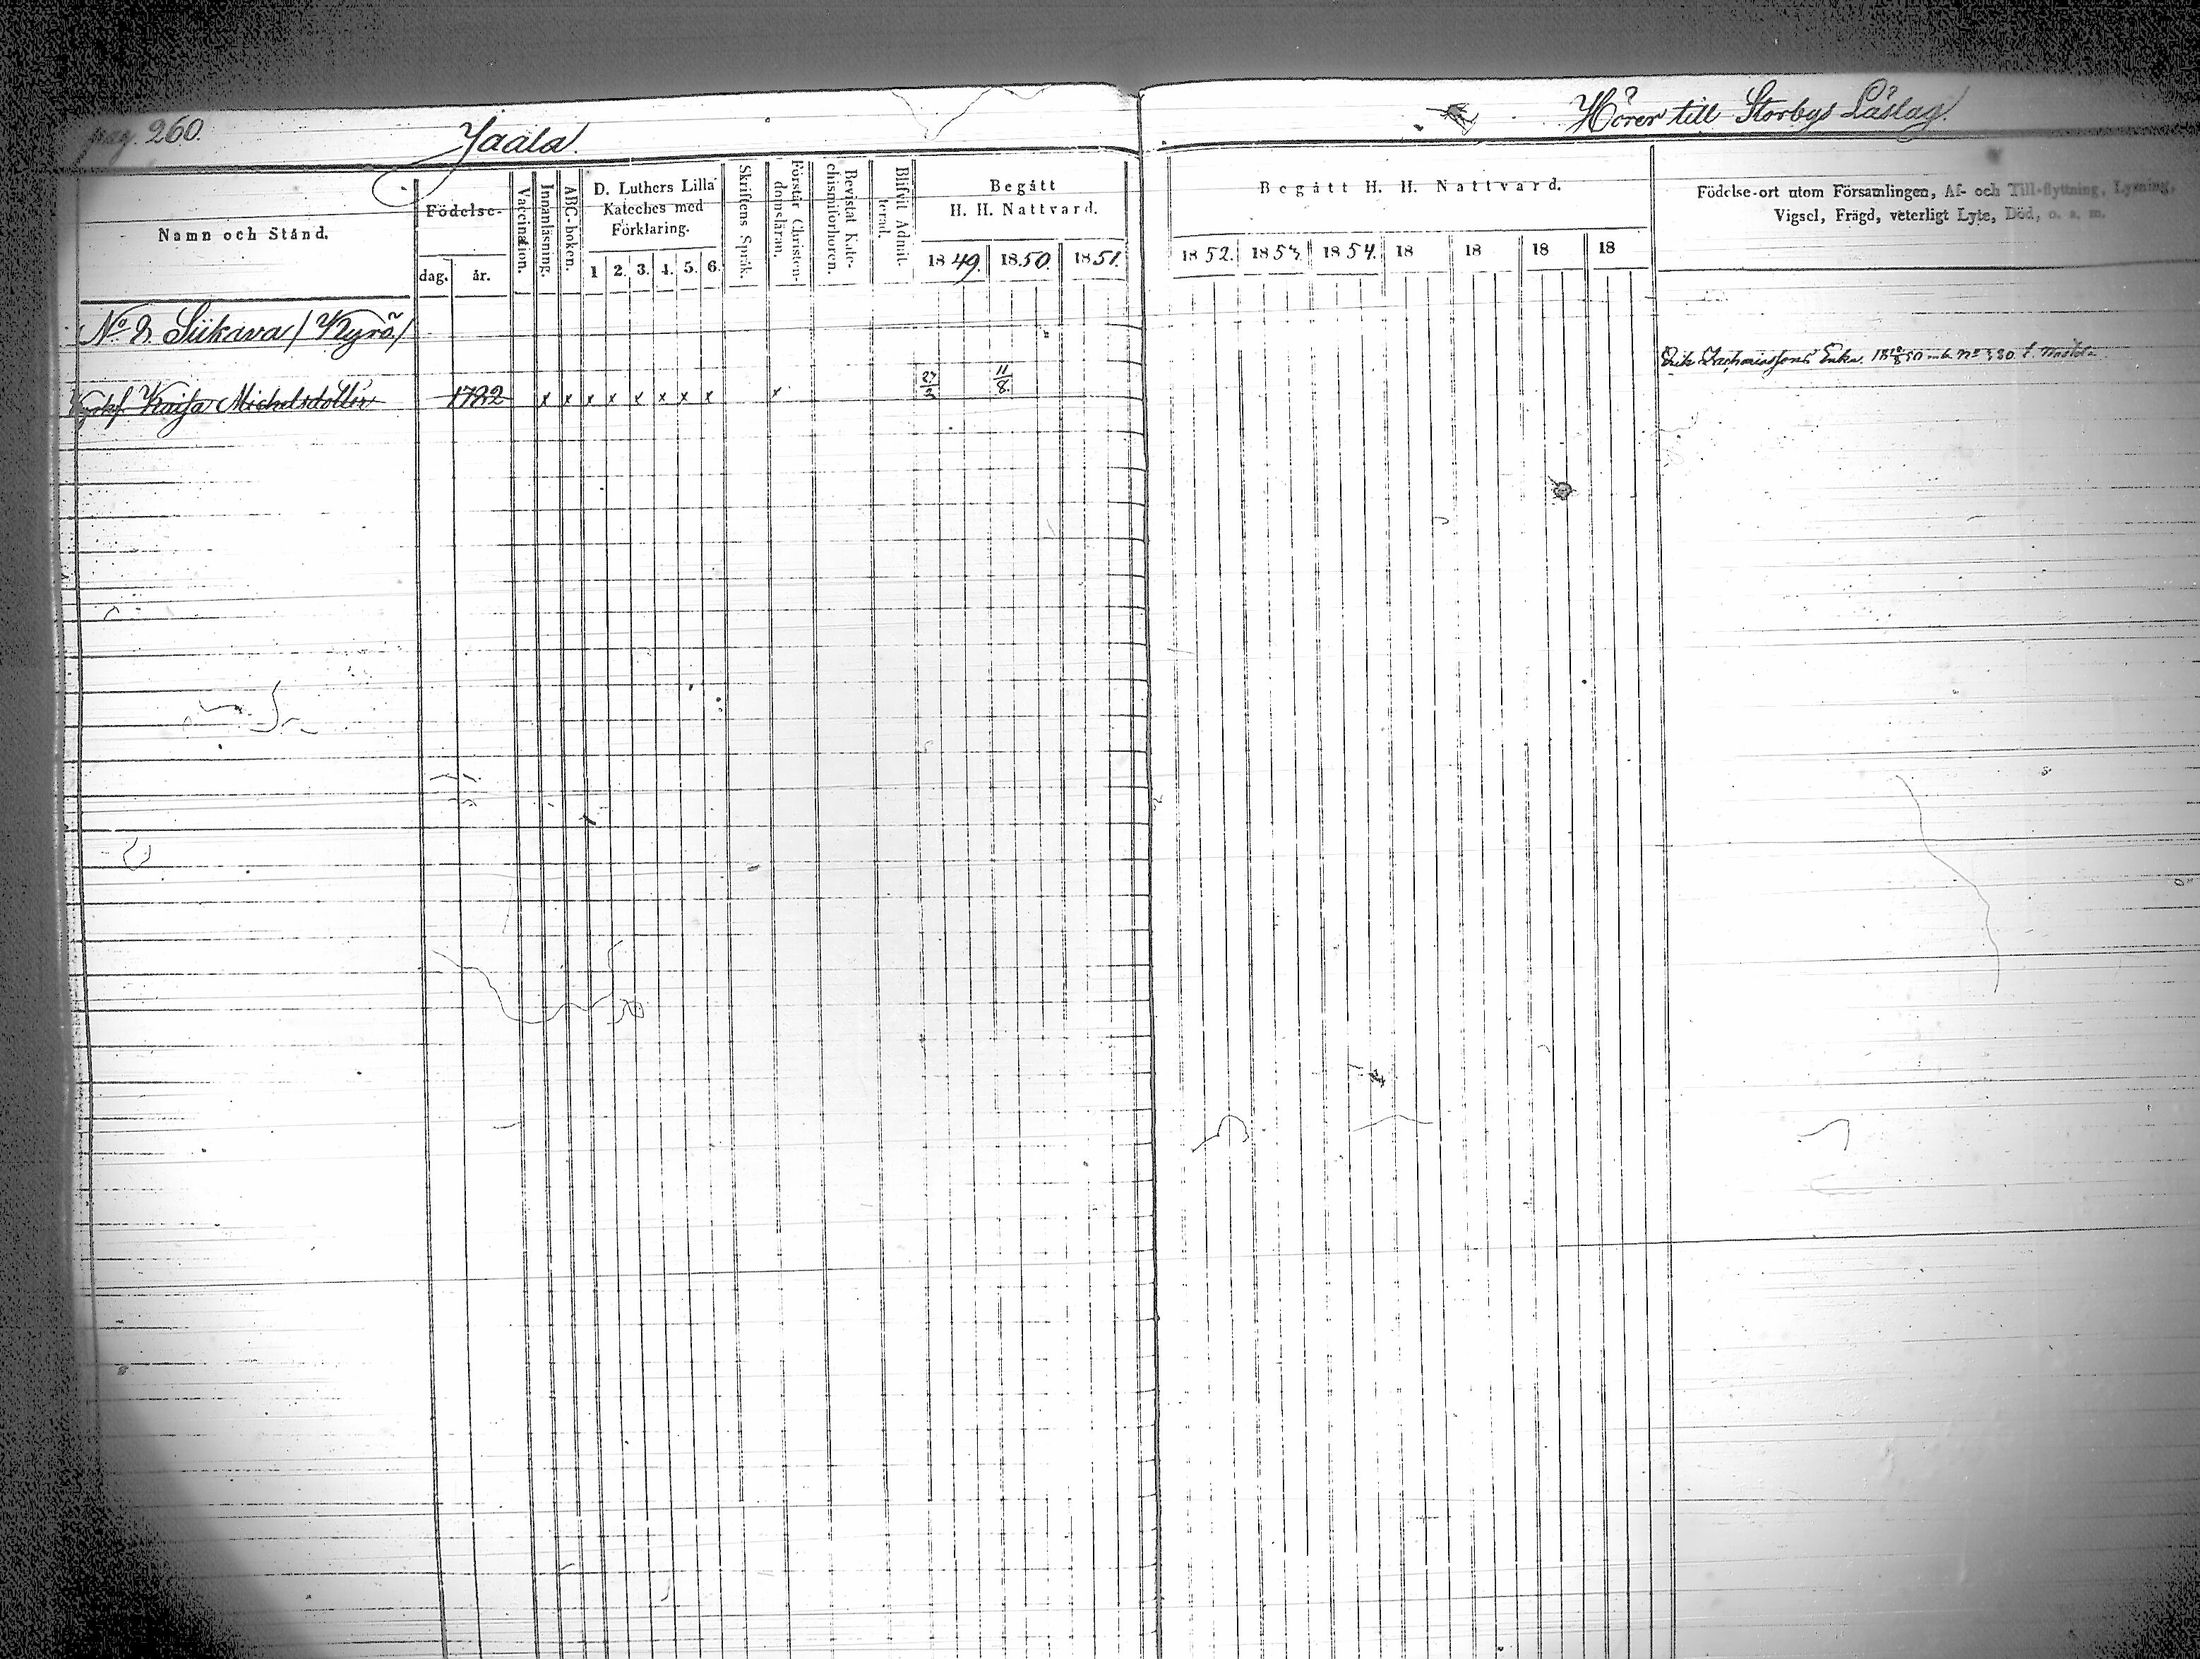 pag. 260.
Jaala.
Hörer till Storbys Läslag.
Namn och Stånd.
Födelse-
dag.
år.
Vaccination.
Innanläsning.
ABC-boken.
D. Luthers Lilla
Kateches med
Förklaring.
1 2. 3. 4. 5. 6.
Skriftens Språk.
Förstår Christen-
domsläran.
Bevistat Kate-
chismiförhören.
Blifvit Admit-
terad.
Begått
H. H. Nattvard.
1849. 1850. 1851.
Begått H. H. Nattvard.
1852. 1853. 1854. 18 18 18 18
Födelse-ort utom Församlingen, Af- och Till-flyttning, Lysning,
Vigsel, Frägd, veterligt Lyte, Död, o. s. m.
No 8. Siikava / Kyrö /
Kaisa Michelsdotter 1782 x x x x x x x x x 11/8
Erik Zachariassons Enka.